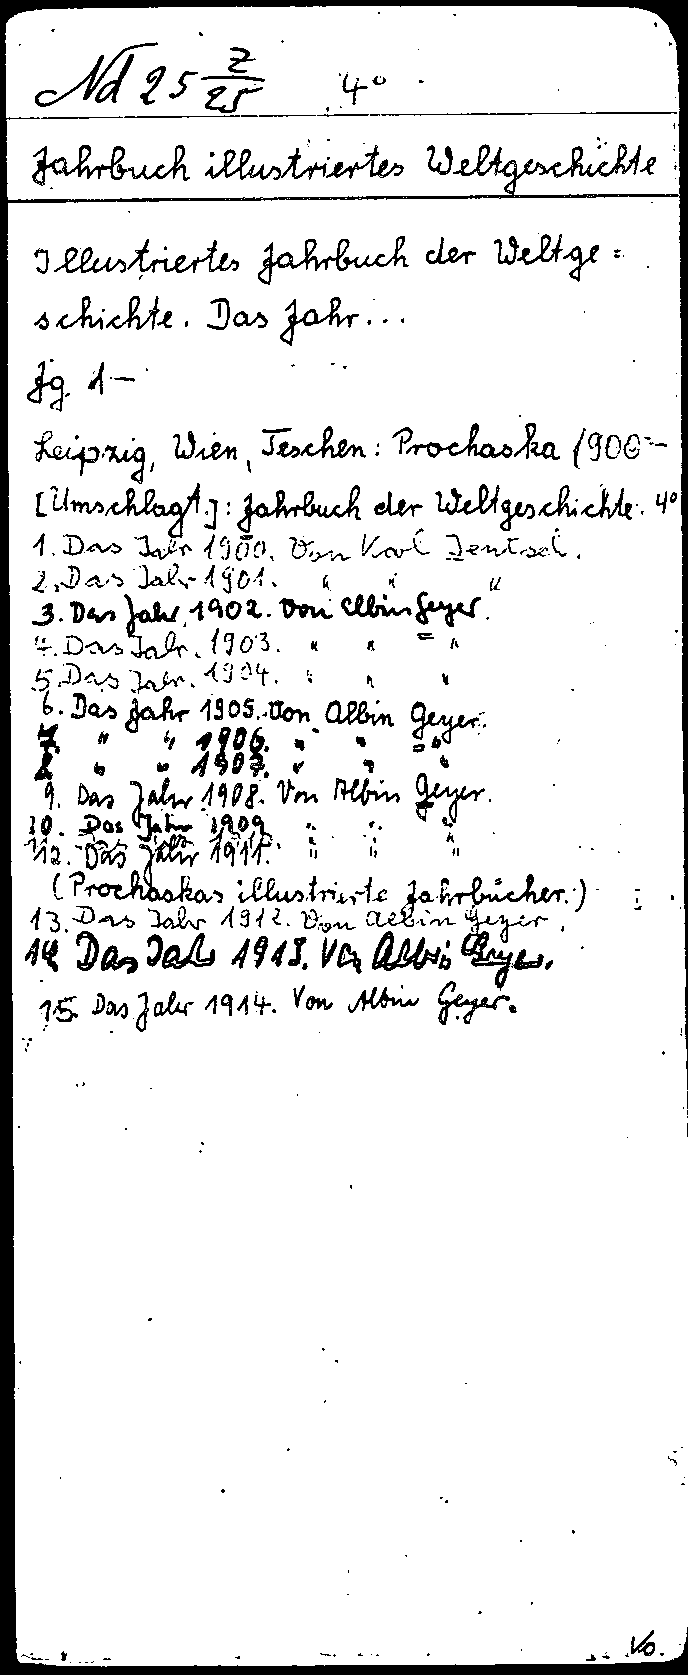 Nd 25 Z/25 4°
Jahrbuch illustriertes Weltgeschichte
Illustriertes Jahrbuch der Weltge=
schichte. Das Jahr...
Jg. 1—
Leipzig, Wien, Teschen: Prochaska 1900—
[Umschlagt.]: Jahrbuch der Weltgeschichte. 4°
1. Das Jahr 1900. Von Karl Jentsch.
2. Das Jahr 1901. " " "
3. Das Jahr 1902. Von Albin Geyer.
4. Das Jahr. 1903. " " "
5. Das Jahr. 1904. " " "
6. Das Jahr 1905. Von Albin Geyer.
7. " " 1906. " " "
8. " " 1907. " " "
9. Das Jahr 1908. Von Albin Geyer.
10. Das Jahr 1909 " " "
12. Das Jahr 1911. " " "
(Prochaskas illustrierte Jahrbücher.)
13. Das Jahr 1912. Von Albin Geyer.
14. Das Jahr 1913. Von Albin Geyer.
15. Das Jahr 1914. Von Albin Geyer.
Vo.